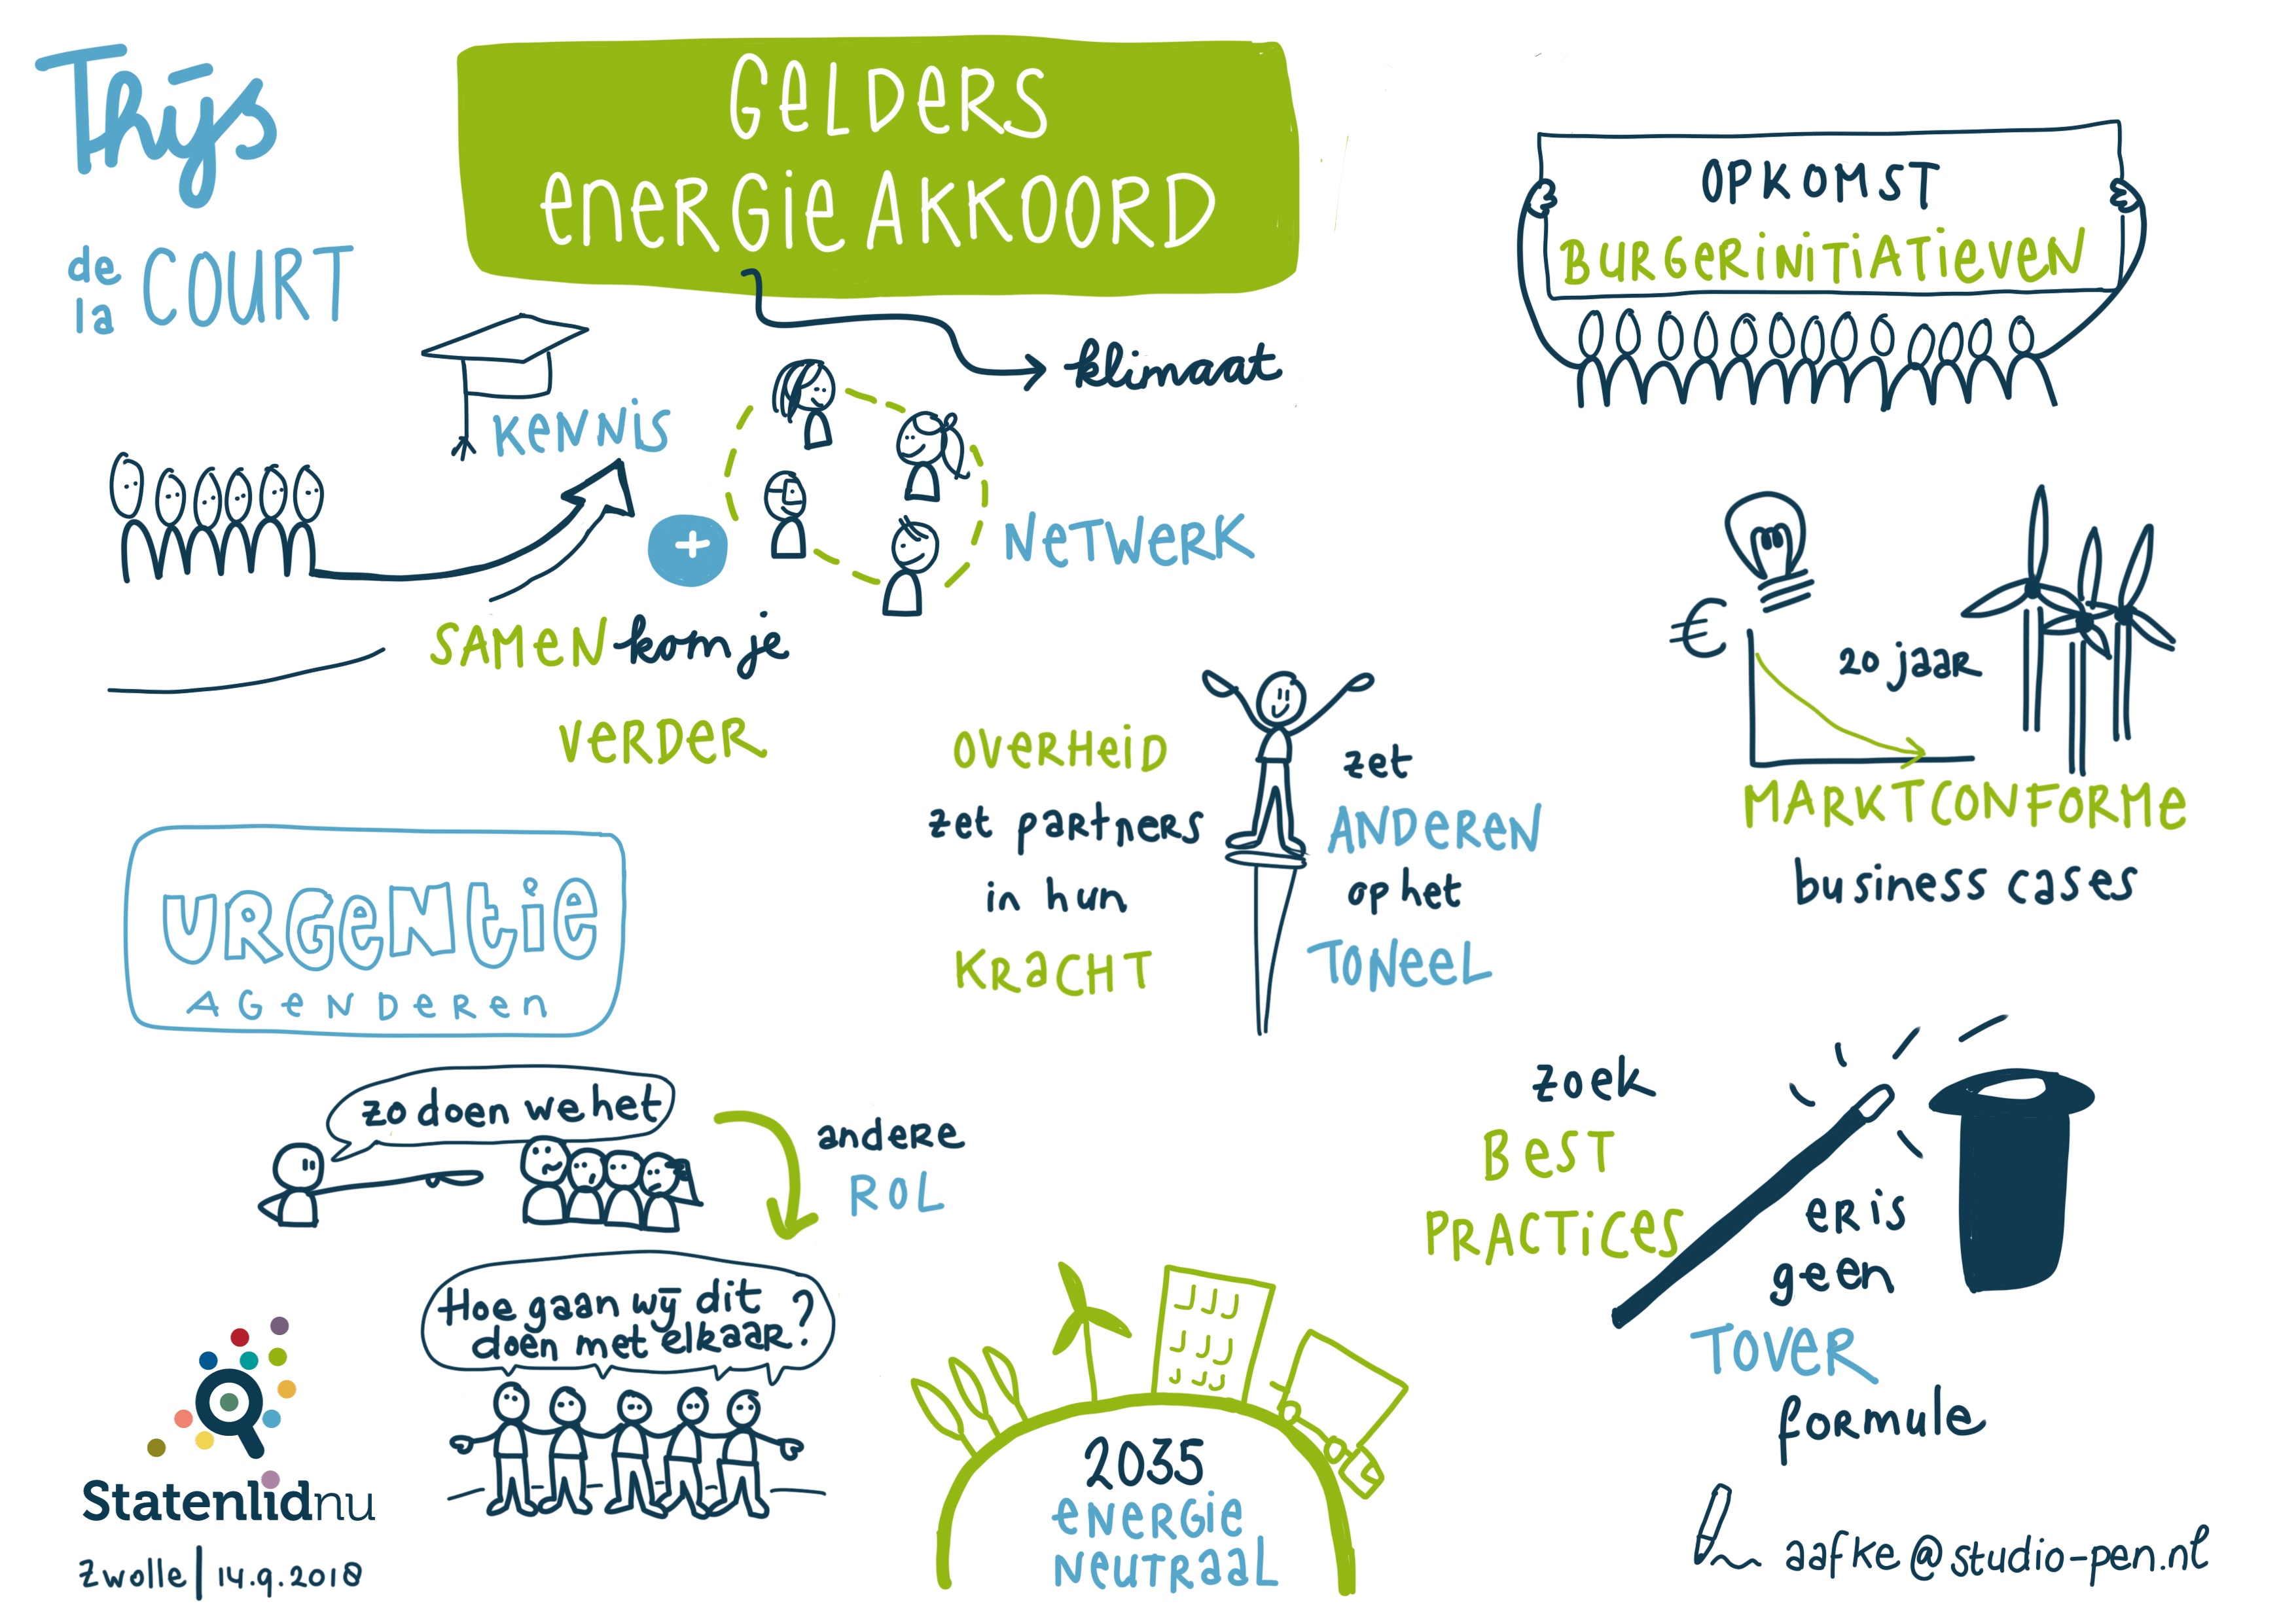 Thijs
de la COURT
GELDERS
ENERGIE AKKOORD
klimaat
KENNIS
+
NETWERK
SAMEN kom je
VERDER
OPKOMST
BURGERINITIATIEVEN
€
20 jaar
MARKTCONFORME
business cases
OVERHEID
zet partners
in hun
KRACHT
zet
ANDEREN
op het
TONEEL
URGENTIE
AGENDEREN
zo doen we het
andere
ROL
Hoe gaan wij dit
doen met elkaar?
zoek
BEST
PRACTICES
er is
geen
TOVER
formule
2035
ENERGIE
NEUTRAAL
Statenlidnu
Zwolle | 14.9.2018
aafke@studio-pen.nl